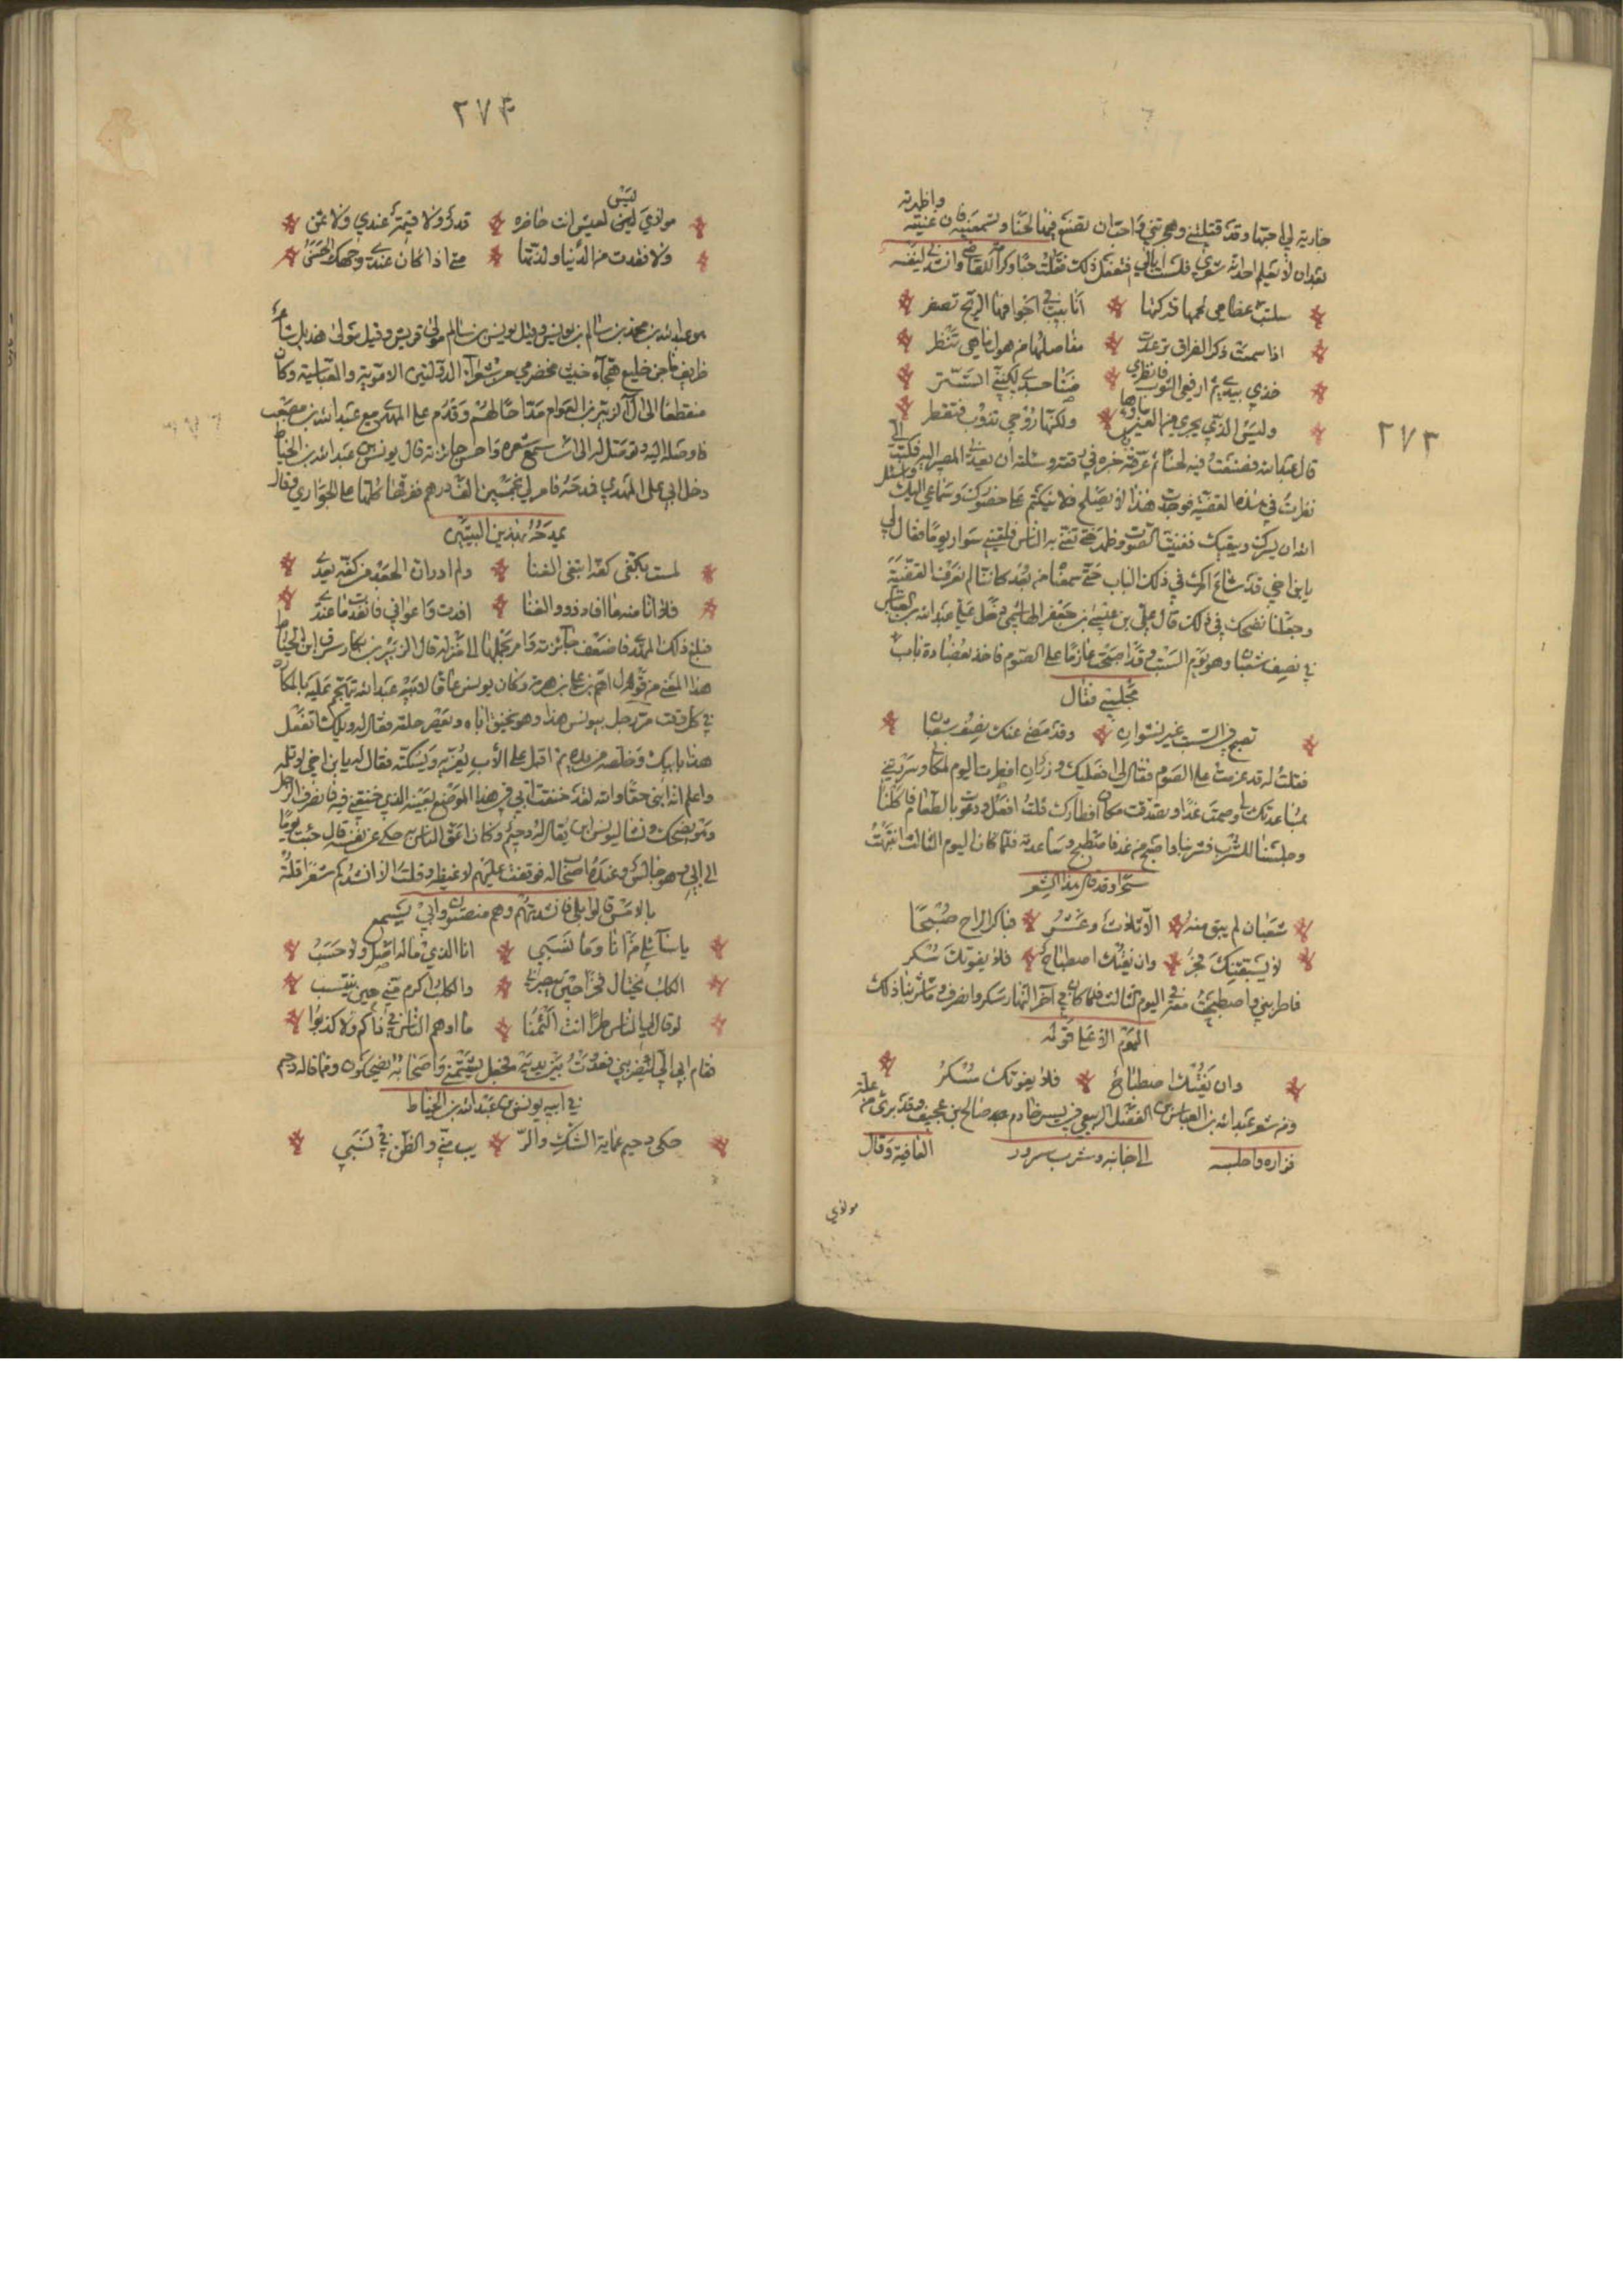 ٢٧٣
واظهرته
جارية لي احبها وقد قتلتني وهجرتني فاحب ان تصنع فيهما لحنا وتسمعنيه فان غنيته
بعد ان لا يعلم احد انه شعري فلست ابالي فتفعل ذلك فقلت حبا وكرامة للقاضي وانشدني لنفسه
سلبت عظامي لحمها فتركتها انابيب في اجوافها الريح تصفر
اذا سمعت ذكر الفراق ترعدت مفاصلها من هول ما هي تنظر
خذي بيدي ثم ارفعي الثوب فانظري ضنا جسدي لكنني اتستر
وليس الذي يجري من العين ماؤها ولكنها روحي تذوب فتقطر
قال عبد الله فصنعت فيه لحنا ثم عرفته خبره في رقعة وسئلته ان يعدني المصير اليه فكتب الي
نظرت في هذه القضية فوجدت هذا لا يصلح فلا ينكتم على حضورك وسماعي اليك واسئل
الله ان يسرك ويبقيك فغنيت الصوت وظهر حتى تغنى به الناس فلقيني سوار يوما فقال لي
يا بن اخي قد شاع امرك في ذلك الباب حتى سمعنا من بعد كاننا لم نعرف القضية
وجعلنا نضحك في ذلك قال علي بن عيسى بن جعفر الهاشمي دخل علي عبد الله بن العباس
في نصف شعبان وهو يوم السبت وقد اصبحت عازما على الصوم فاخذ بعضادة باب
مجلسي فقال
تصبح في السبت غير نشوان وقد مضى عنك نصف شعبان
فقلت له قد عزمت على الصوم فقال لي افعليك وزر ان افطرت اليوم لمكاني وسررتني
بمساعدتك لي وصمت غدا وتصدقت مكان افطارك قلت افعل ودعوت بالطعام فاكلنا
وجلسنا للشرب فشربنا واصبح من غد فاصطبح وساعدته فلما كان اليوم الثالث انتبهت
سحرا وقد قال هذا الشعر
شعبان لم يبق منه الا ثلاث وعشر فباكر الراح صبحا
لا يسبقنك فجر وان يفتك اصطباح فلا يفوتك سكر
فاطربني واصطبحت معه في اليوم الثالث فلما كان في آخر النهار سكر وانصرف وما شربنا ذلك
اليوم الا على قوله
وان يفتك اصطباح فلا يفوتك سكر
ومن شعر عبد الله بن العباس بن الفضل الربيعي في يسر خادم صالح بن عجيف وقد برئ من علة
فزاره واجلسه الى جانبه وشرب سرور العافية وقال
مولاي
٢٧٤
ليس
مولاي ليس لعيش انت حاضره قدر ولا قيمة عندي ولا ثمن
ولا فقدت من الدنيا ولذتها متى اذا كان عندي وجهك الحسن
هو عبد الله بن محمد بن سالم بن يونس وقيل يونس بن سالم مولى قريش وقيل مولى هذيل شاعر
ظريف ماجن خليع هجاء خبيث مخضرمي من شعراء الدولتين الاموية والعباسية وكان
منقطعا الى آل الزبير بن العوام مداحا لهم وقدم على المهدي مع عبد الله بن مصعب
فاوصله اليه وتوصل له الى ان سمع شعره واحسن جائزته قال يونس بن عبد الله بن الخياط
دخل ابي على المهدي فمدحه فامر لي بخمسين الف درهم ففرقها كلها على الجواري وقال
يمدحه بهذين البيتين
لمست بكفي كفه ابتغي الغنا ولم ادر ان الجود من كفه يعدي
فلا انا منه ما افاد ذوو الغنا افدت واعداني فانفدت ما عندي
فبلغ ذلك المهدي فاضعف جائزته وامر بحملها الى منزله قال الزبير بن بكار سرق ابن الخياط
هذا المعنى من قول ابراهيم بن علي بن هرمة وكان يونس عاقا لابيه عبد الله يتهجم عليه بالمكان
في كل وقت مر رجل بيونس هذا وهو يخنق اباه ويعصر حلقه فقال له ويلك اتفعل
هذا بابيك وخلصه من يده ثم اقبل على الاب يعزيه ويسكته فقال له يا بن اخي لا تلمه
واعلم انه ابني حقا والله لقد خنقت ابي في هذا الموضع بعينه الذي خنقني فيه فانصرف الرجل
وهو يضحك ونشا ليونس ابن يقال له دحيم وكان اعق الناس حكى عن نفسه قال جئت يوما
الى ابي وهو جالس وعنده اصحاب له فوقفت عليهم لاغيظه وقلت الا انشدكم شعرا قلته
بالامس قالوا بلى فانشدتهم وهم منصتون وابي يسمع
يا سائلي من انا وما نسبي انا الذي ماله اصل ولا حسب
الكلب يختال فخرا حين يبصرني والكلب اكرم مني حين ينتسب
لو قال لي الناس طرا انت الأمنا ما اوهم الناس في ذاكم ولا كذبوا
فقام ابي الي ليضربني فعدوت بين يديه فجعل يشتمني واصحابه يضحكون ومما قاله دحيم
في ابيه يونس بن عبد الله بن الخياط
حكى دحيم عماية الشك والر يب مني والظن في نسبي